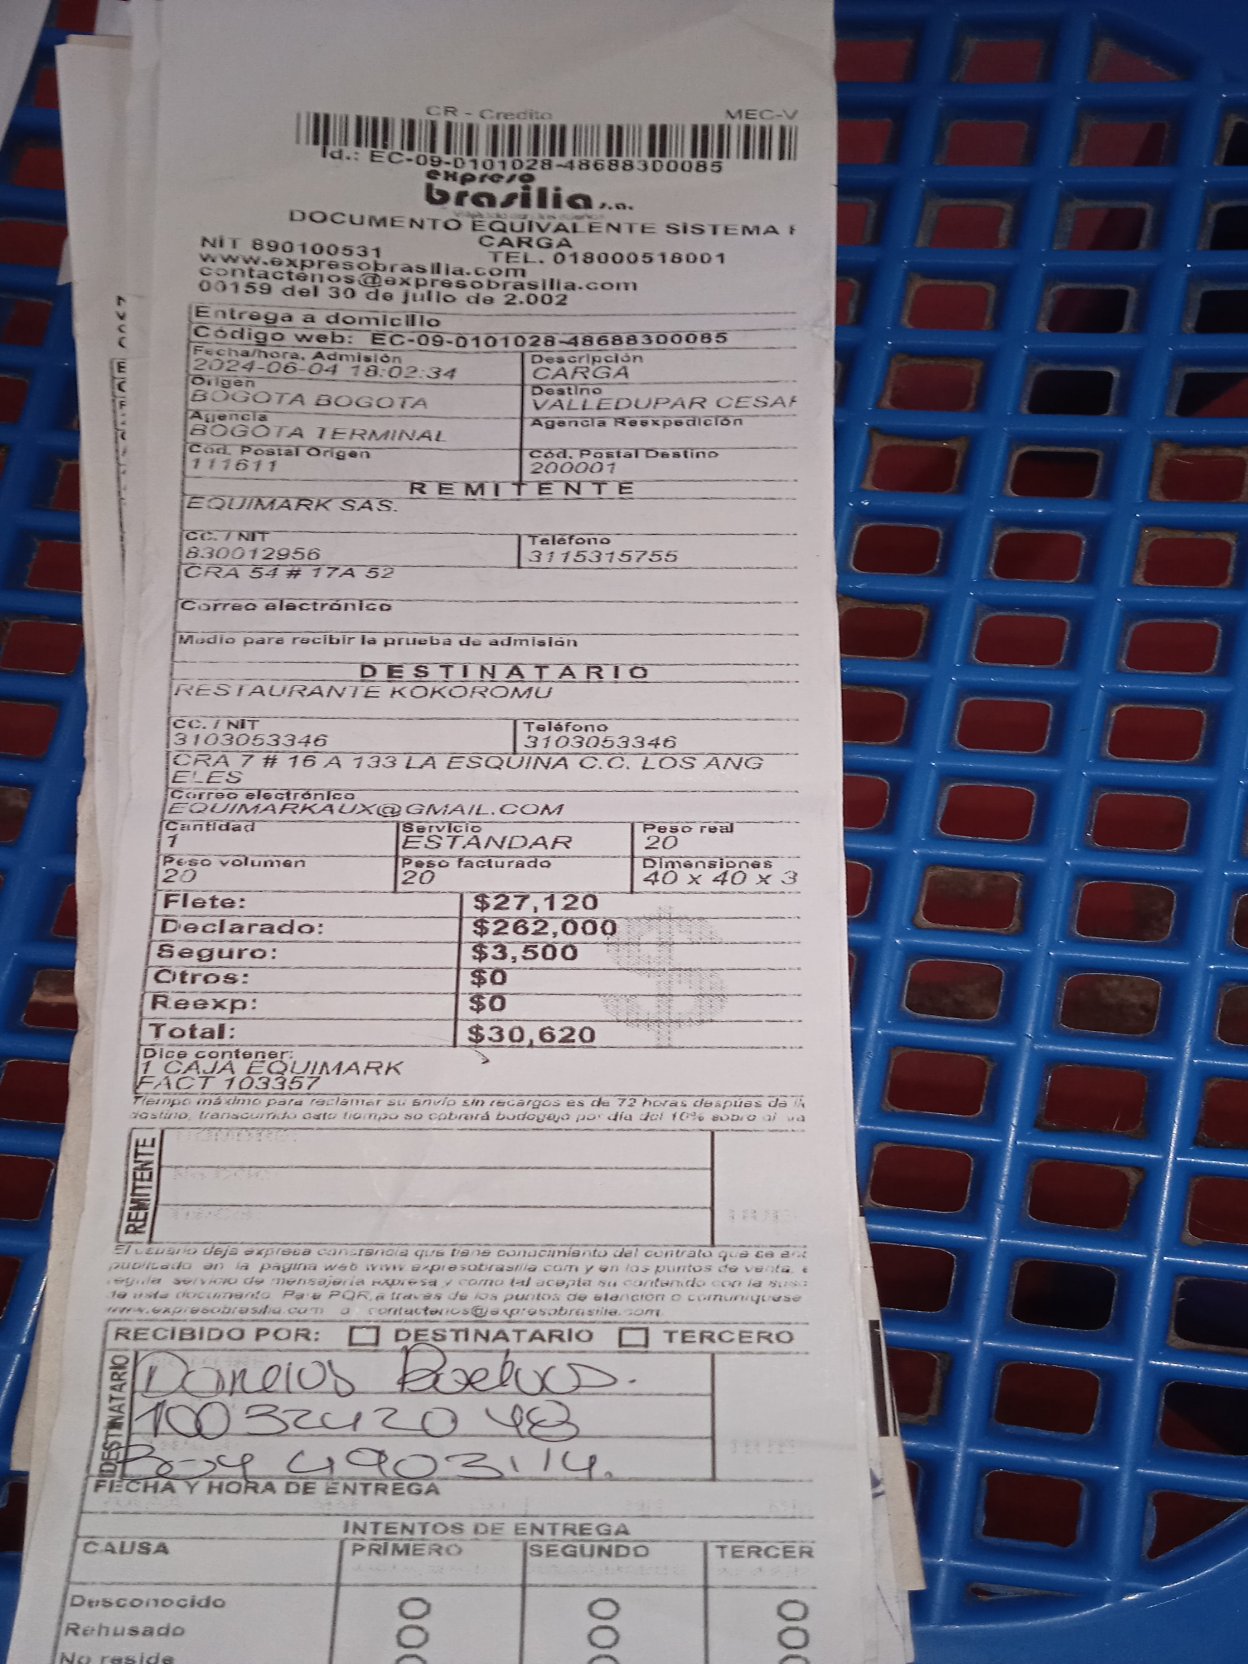 CR - Credito MEC-V
Id.: EC-09-0101028-48688300085
expreso
brasilia s.a.
DOCUMENTO EQUIVALENTE SISTEMA
CARGA
NIT 890100531 TEL. 018000518001
www.expresobrasilia.com
contactenos@expresobrasilia.com
00159 del 30 de julio de 2.002
Entrega a domicilio
Código web: EC-09-0101028-48688300085
Fecha/hora, Admisión Descripción
2024-06-04 18:02:34 CARGA
Origen Destino
BOGOTA BOGOTA VALLEDUPAR CESAR
Agencia Agencia Reexpedición
BOGOTA TERMINAL
Cód. Postal Origen Cód. Postal Destino
111611 200001
REMITENTE
EQUIMARK SAS.
CC. / NIT Teléfono
830012956 3115315755
CRA 54 # 17A 52
Correo electrónico
Medio para recibir la prueba de admisión
DESTINATARIO
RESTAURANTE KOKOROMU
CC. / NIT Teléfono
3103053346 3103053346
CRA 7 # 16 A 133 LA ESQUINA C.C. LOS ANG
ELES
Correo electrónico
EQUIMARKAUX@GMAIL.COM
Cantidad Servicio Peso real
1 ESTANDAR 20
Peso volumen Peso facturado Dimensiones
20 20 40 x 40 x 3
Flete: $27,120
Declarado: $262,000
Seguro: $3,500
Otros: $0
Reexp: $0
Total: $30,620
Dice contener:
1 CAJA EQUIMARK
FACT 103357
Tiempo máximo para reclamar su envío sin recargos es de 72 horas despues de
destino, transcurrido este tiempo se cobrará bodegaje por día del 10% sobre el va
REMITENTE
El usuario deja expresa constancia que tiene conocimiento del contrato que se
publicado en la pagina web www.expresobrasilia.com y en los puntos de venta,
regula servicio de mensajería expresa y como tal acepta su contenido con la sus
de este documento. Para PQR a traves de los puntos de atencion o comuniquese
www.expresobrasilia.com o contactenos@expresobrasilia.com
RECIBIDO POR: DESTINATARIO TERCERO
DESTINATARIO
1003242048
4903114.
FECHA Y HORA DE ENTREGA
INTENTOS DE ENTREGA
CAUSA PRIMERO SEGUNDO TERCER
Desconocido
Rehusado
No reside